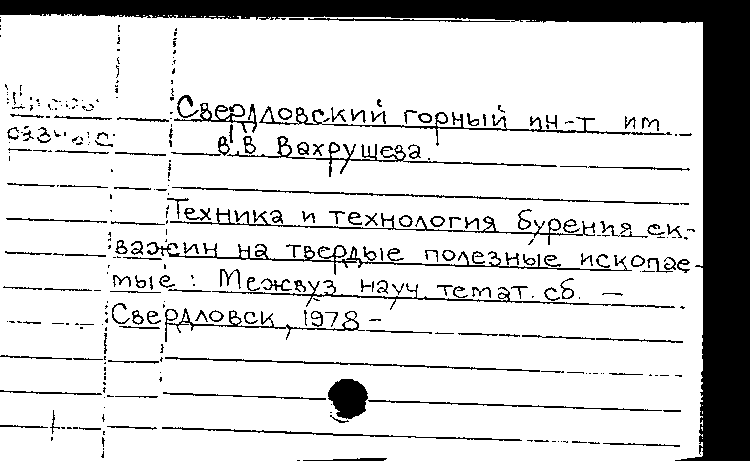 Шифры
разные
Свердловский горный ин-т им
В.В. Вахрушева.
Техника и технология бурения ск-
важин на твердые полезные ископае-
мые : Межвуз науч. темат. сб. —
Свердловск, 1978 -